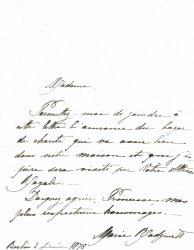 Madame,
Permettez moi de joindre à
cette lettre l'annonce du bazar
de charité qui va avoir lieu
dans notre maison et que j'es
père sera visité par Votre Altesse
Royale.
Daignez agréer, Princesse, mes
plus respectueux hommages.
Marie
Berlin 2 1875